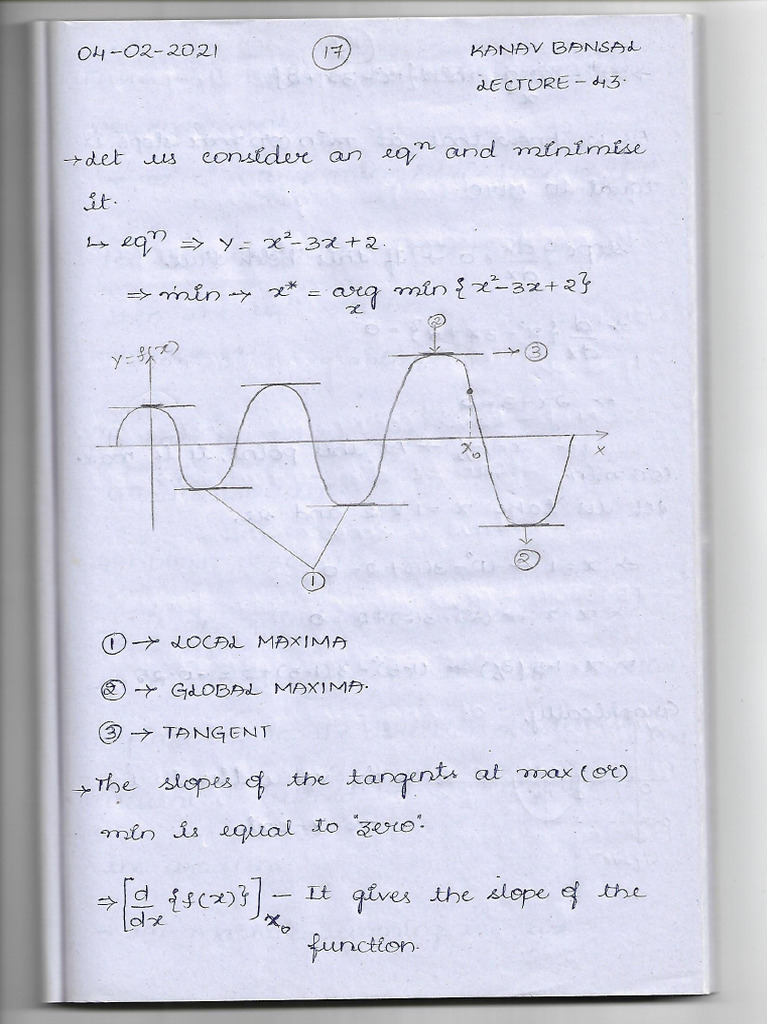 04-02-2021 17 KANAV BANSAL
LECTURE-43.
→ Let us consider an eqⁿ and minimise
it.
↳ eqⁿ ⇒ Y = x²-3x+2.
⇒ min → x* = arg min {x²-3x+2}
x
②
Y=f(x)
→ ③
x₀
x
②
①
① → LOCAL MAXIMA
② → GLOBAL MAXIMA.
③ → TANGENT
→ The slopes of the tangents at max (or)
min is equal to "zero".
⇒ [d/dx {f(x)}]x₀ - It gives the slope of the
function.